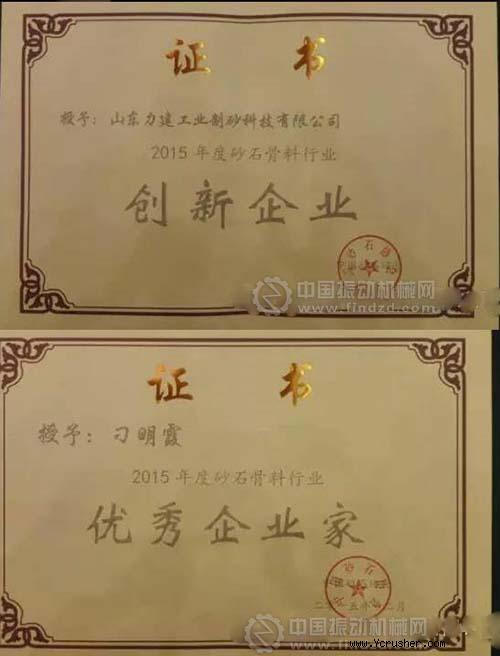 证 书
授予：山东力建工业制砂科技有限公司
2015年度砂石骨料行业
创新企业
中国振动机械网
www.findzd.com
证 书
授予：刁明霞
2015年度砂石骨料行业
优秀企业家
中国振动机械网
www.findzd.com
www.Ycrusher.com